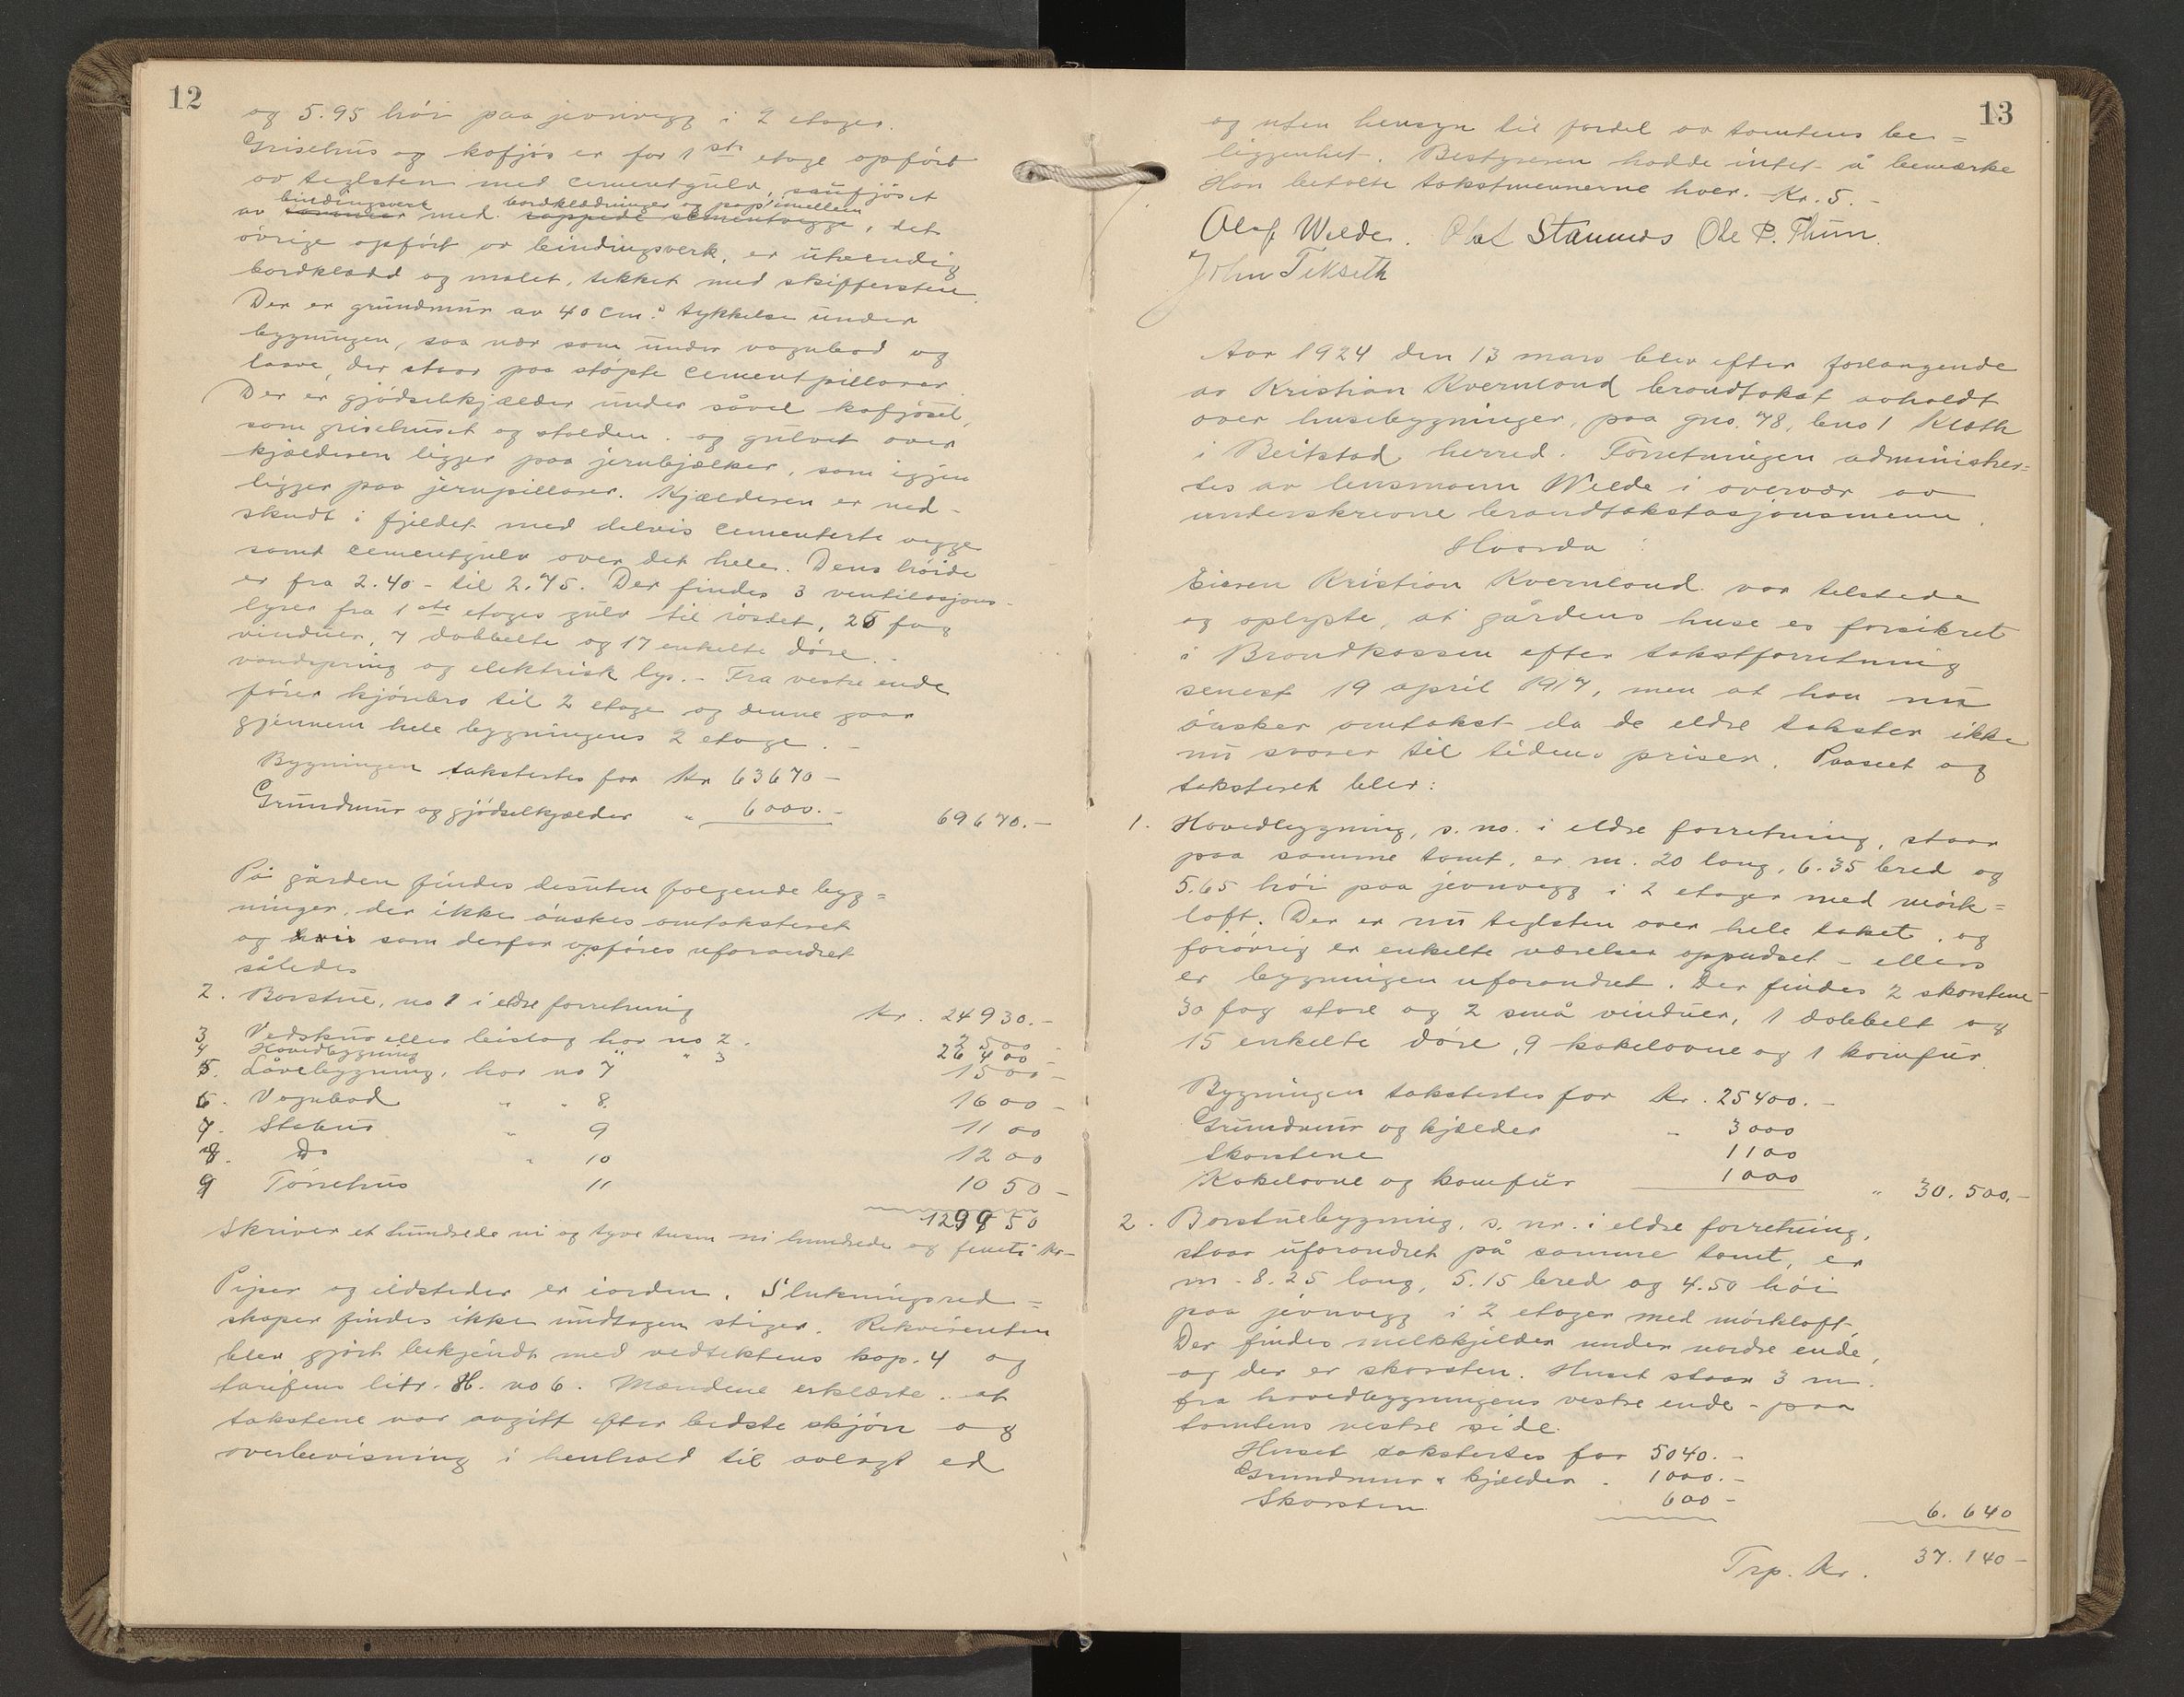 12
og 5.95 höi paa jevnvegg i 2 etager.
Grisehus og kofjös er for 1ste etage opfört
av teglsten med cementgulv, saufjöset
bindingsverk bordklædninger og pap imellem
av tømmer med rappede cementvegge, det
övrige opfört av bindingsverk, er utvendig
bordklædd og malet, tekket med skiffersten.
Der er grundmur av 40 cm.s tykkelse under
bygningen, saa nær som under vognbod og
laave, der staar paa stöpte cementpillarer
Der er gjödselkjælder under såvel kofjöset,
som grisehuset og stalden. og gulvet over
kjælderen ligger paa jernbjælker, som igjen
ligger paa jernpillarer. Kjælderen er ned-
skudt i fjeldet med delvis cementerte vegge
samt cementgulv over det hele. Dens höide
er fra 2.40 - til 2.75. Der findes 3 ventilasjons-
lyrer fra 1ste etages gulv til röstet, 25 fag
vinduer, 7 dobbelte og 17 enkelte döre.
vandspring og elektrisk lys. - Fra vestre ende
förer kjörebro til 2 etage og denne gaar
gjennem hele bygningens 2 etage. -
Bygningen takstertes for Kr 63670 -
Grundmur og gjödselkjælder " 6000. - 69670. -
På gården findes desuten følgende byg=
ninger, der ikke önskes omtaksteret
og som derfor opföres uforandret
således
2. Borstue, no 1 i eldre forretning Kr. 24930. -
3 Vedskur eller leislag har no 2. 2500 -
4 Hovedbygning " " 3 26400 -
5. Låvebygning, har no 7 1500 -
6. Vognbod " " 8. 1600 -
7. Stabur " 9 1100
8. Do " 10 1200
9 Törrehus 11 1050 -
129950
Skriver et hundrede ni og tyve tusen ni hundrede og femti kr -
Piper og ildsteder er i orden. Slukningsred=
skaper findes ikke undtagen stiger. Rekvirenten
blev gjort bekjendt med vedtektens kap. 4 og
tarifens litr. H. no 6. Mændene erklærte. at
takstene var avgitt efter bedste skjön og
overbevisning i henhold til avlagt ed
13
og uten hensyn til fordel av tomtens be=
liggenhet. Bestyreren hadde intet å bemærke
Han betalte takstmennerne hver. Kr. 5. -
Olaf Welde. Olaf Stamnes Ole P. Thun.
John Tekseth
Aar 1924 den 13 mars blev efter forlangende
av Kristian Kvernland brandtakst avholdt
over husebygninger, paa gno. 78, bno 1 Kloth
i Beitstad herred. Forretningen administrer=
tes av lensmann Welde i overvær av
underskrevne brandtakstasjonsmenn.
Hvorda:
Eieren Kristian Kvernland var tilstede
og oplyste, at gårdens huse er forsikret
i Brandkassen efter takstforretning
senest 19 april 1917, men at han nu
önsker omtakst da de eldre takster ikke
nu svarer til tidens priser. Paaseet og
taksteret blev:
1. Hovedbygning, s. no. i eldre forretning, staar
paa samme tomt, er m. 20 lang, 6.35 bred og
5.65 höi paa jevnvegg i 2 etager med mörk=
loft. Der er nu teglsten over hele taket. og
forövrig er enkelte værelser oppudset - ellers
er bygningen uforandret. Der findes 2 skorstene -
30 fag store og 2 små vinduer, 1 dobbelt og
15 enkelte döre, 9 kakelovne og 1 komfur.
Bygningen takstertes for Kr. 25400. -
Grundmur og kjælder " 3000
Skorstene 1100
Kakelovne og komfur 1000 " 30.500. -
2. Borstuebygning. s. nr. i eldre forretning,
staar uforandret på samme tomt, er
m. 8.25 lang, 5.15 bred og 4.50 höi
paa jevnvegg i 2 etager med mörkloft,
Der findes melkkjelder under nordre ende,
og der er skorsten. Huset staar 3 m.
fra hovedbygningens vestre ende - paa
tomtens vestre side.
Huset takstertes for 5040. -
Grundmur & kjælder . 1000. -
Skorsten 600 - 6. 640
Trp. Kr. 37. 140 -